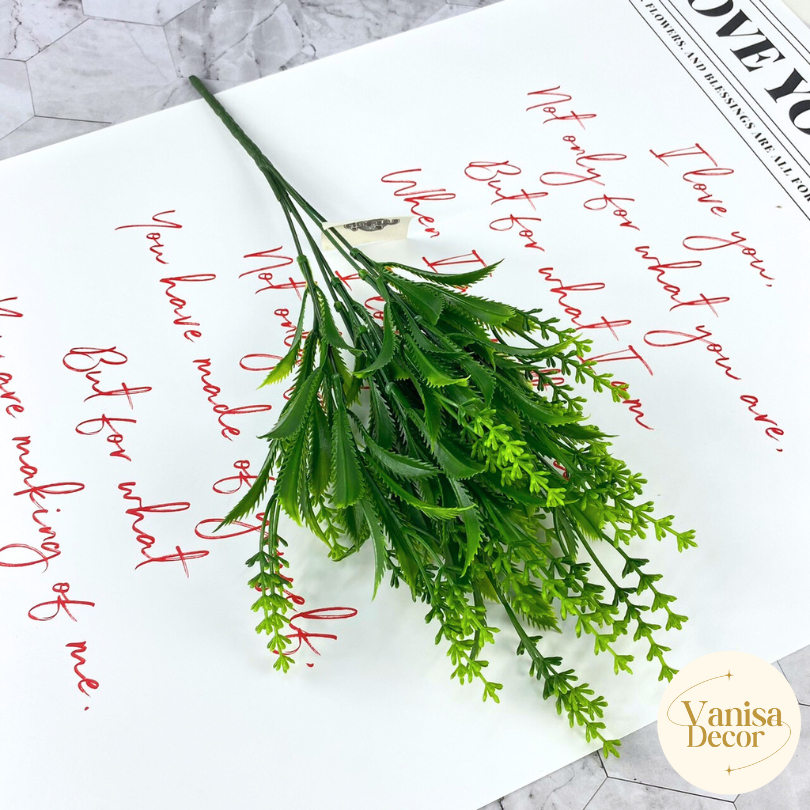 LOVE YO
FLOWERS, AND BLESSINGS ARE ALL FOR
I love you,
Not only for what you are,
But for what I am
When I
Not only
You have made of yourself,
But for what
You are making of me.
Vanisa
Decor